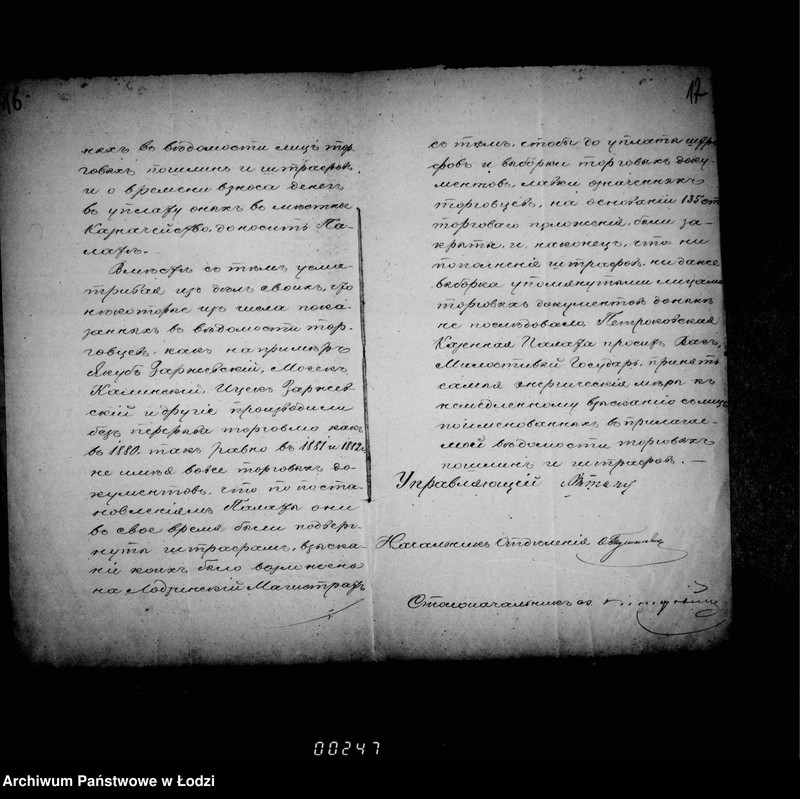 16
ныхъ въ вѣдомости лицъ тор-
говыхъ пошлинъ и штрафовъ
и о времени взноса денегъ
въ уплату оныхъ въ мѣстное
Казначейство, доносить Па-
латѣ.—
Вмѣстѣ съ тѣмъ усма-
тривая изъ дѣлъ своихъ, что
нѣкоторые изъ числа пока-
занныхъ въ вѣдомости тор-
говцевъ, какъ напримѣръ
Якубъ Заржевскій, Мосекъ
Калинскій, Ицекъ Заржев-
скій и другіе производили
безъ перерыва торговлю какъ
въ 1880, такъ равно въ 1881 и 1882
не имѣя вовсе торговыхъ до-
кументовъ, что по поста-
новленіямъ Палаты они
въ свое время были подверг-
нуты штрафамъ, взыска-
ніе коихъ было возложено
на Лодзинскій Магистратъ
17
съ тѣмъ, чтобы до уплаты штра-
фовъ и выборки торговыхъ доку-
ментовъ, лавки означенныхъ
торговцевъ, на основаніи 135 ст
торговаго положенія, были за-
крыты, и наконецъ, что ни
пополненія штрафовъ, ни даже
выборка упомянутыми лицами
торговыхъ документовъ донынѣ
не послѣдовало, Петроковская
Казенная Палата проситъ Васъ,
Милостивый Государь, принять
самыя энергическія мѣры къ
немедленному взысканію съ лицъ
поименованныхъ въ прилагае-
мой вѣдомости торговыхъ
пошлинъ и штрафовъ.—
Управляющій
Начальникъ Отдѣленія
Столоначальникъ
00247
Archiwum Państwowe w Łodzi